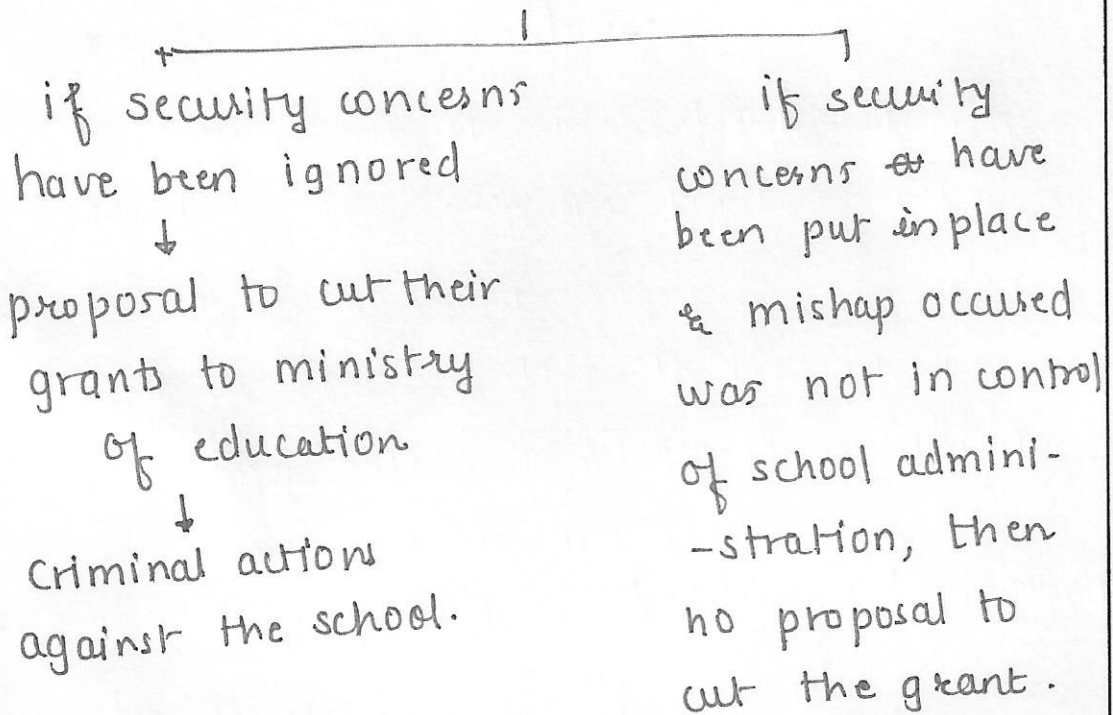 if security concerns
have been ignored
↓
proposal to cut their
grants to ministry
of education
↓
Criminal actions
against the school.
if security
concerns have
been put in place
& mishap occured
was not in control
of school admini-
-stration, then
no proposal to
cut the grant.